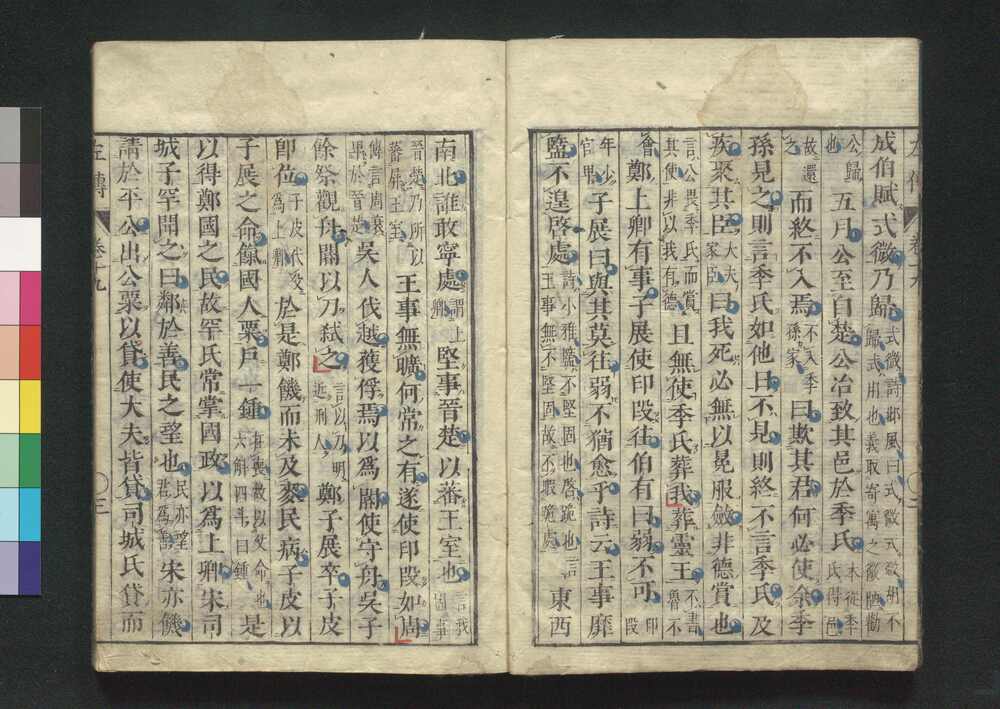 成伯賦式微乃歸式微詩邶風曰式微式微胡不歸式用也義取寄寓之微陋勸
公歸也五月公至自楚公冶致其邑於季氏本從季氏得邑
故還之而終不入焉不入季孫家曰欺其君何必使余季
孫見之則言季氏如他日不見則終不言季氏及
疾聚其臣大夫家臣曰我死必無以冕服斂非德賞也
言公畏季氏而賞其使非以我有德且無使季氏葬我葬靈王不書魯不
會鄭上卿有事子展使印段往伯有曰弱不可印段
年少官卑子展曰與其莫往弱不猶愈乎詩云王事靡
盬不遑啓處詩小雅盬不堅固也啓跪也言王事無不堅固故不暇跪處東西
南北誰敢寧處謂上卿堅事晉楚以蕃王室也言我固事
晉楚乃所以蕃屏王室王事無曠何常之有遂使印段如周
傳言周衰卑於晉楚吳人伐越獲俘焉以爲閽使守舟吳子
餘祭觀舟閽以刀弒之言以刀明近刑人鄭子展卒子皮
即位子皮代父爲上卿於是鄭饑而未及麥民病子皮以
子展之命餼國人粟戶一鍾在喪故以父命也六斛四斗曰鍾是
以得鄭國之民故罕氏常掌國政以爲上卿宋司
城子罕聞之曰鄰於善民之望也民亦望君爲善宋亦饑
請於平公出公粟以貸使大夫皆貸司城氏貸而
左傳 卷十九 三